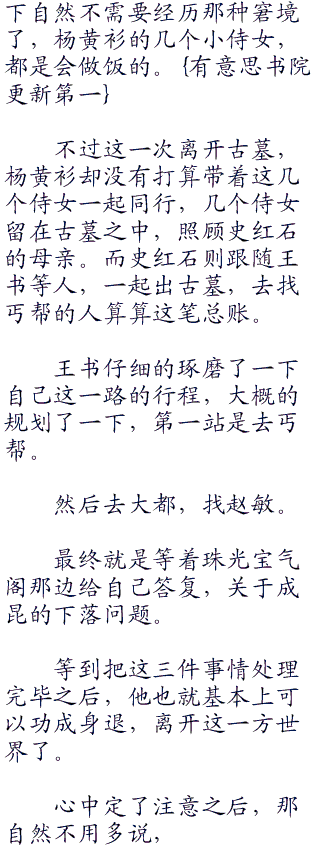 下自然不需要经历那种窘境
了，杨黄衫的几个小侍女，
都是会做饭的。{有意思书院
更新第一}
不过这一次离开古墓，
杨黄衫却没有打算带着这几
个侍女一起同行，几个侍女
留在古墓之中，照顾史红石
的母亲。而史红石则跟随王
书等人，一起出古墓，去找
丐帮的人算算这笔总账。
王书仔细的琢磨了一下
自己这一路的行程，大概的
规划了一下，第一站是去丐
帮。
然后去大都，找赵敏。
最终就是等着珠光宝气
阁那边给自己答复，关于成
昆的下落问题。
等到把这三件事情处理
完毕之后，他也就基本上可
以功成身退，离开这一方世
界了。
心中定了注意之后，那
自然不用多说，